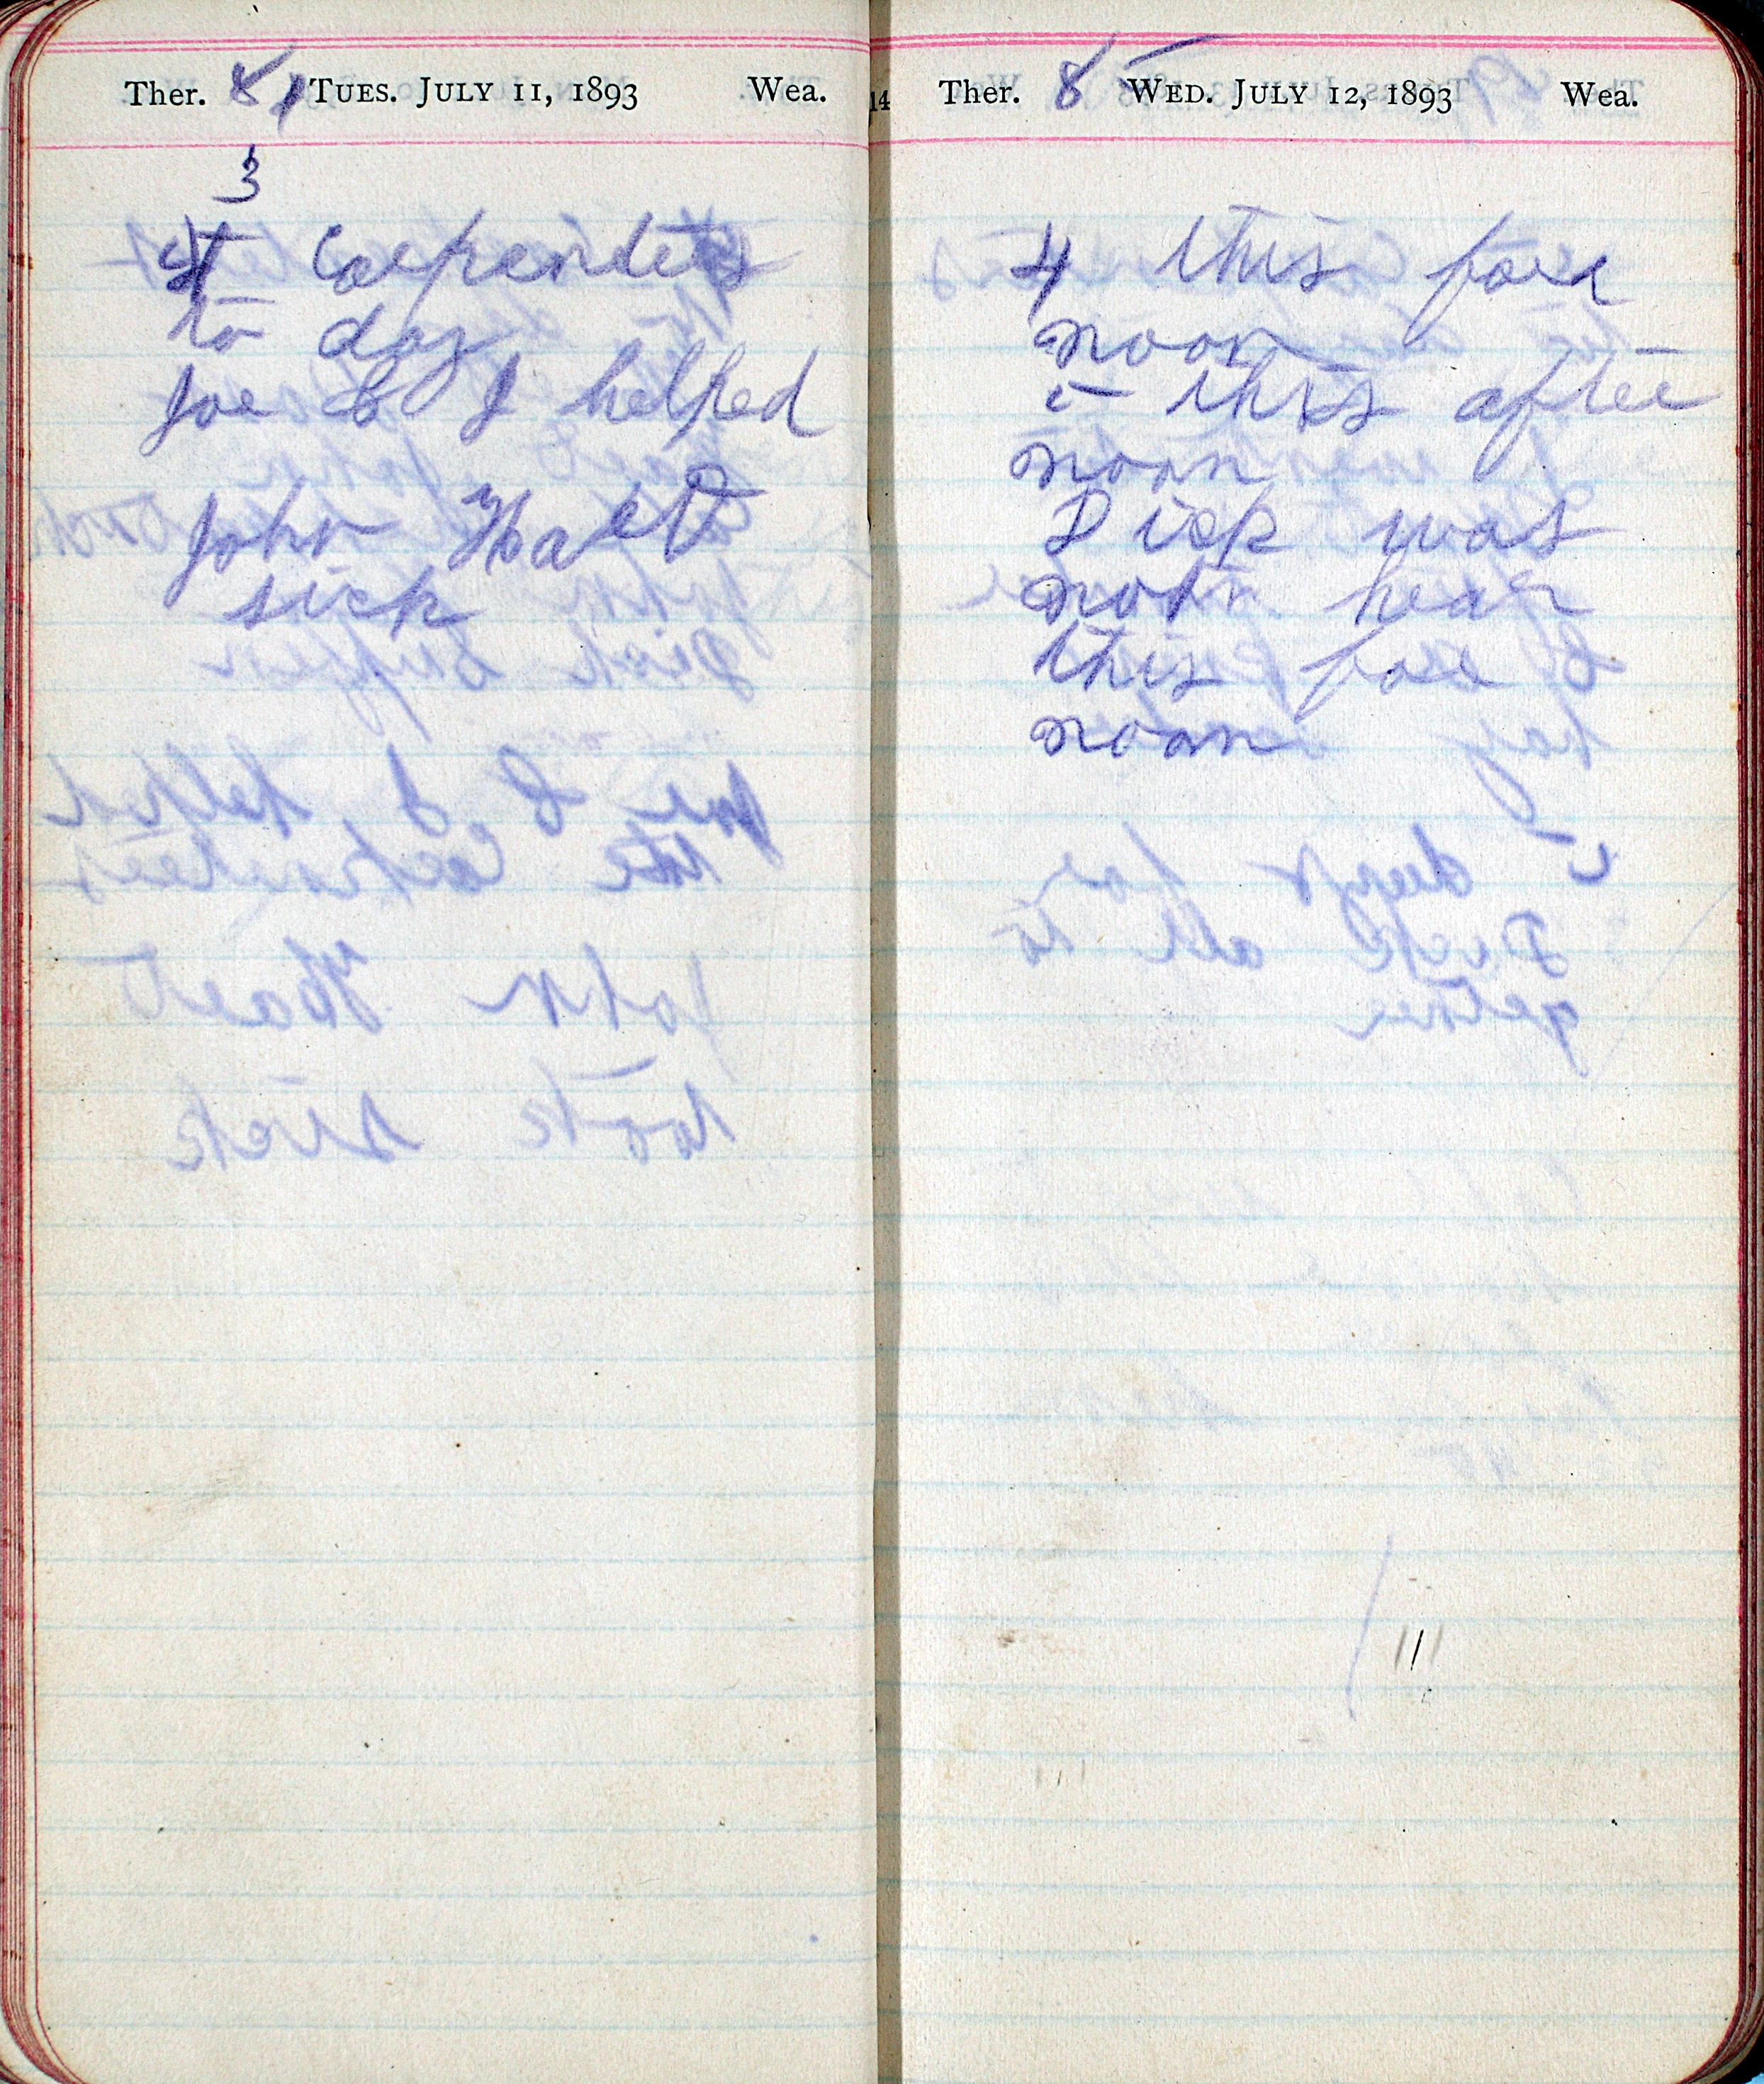 Ther. 81 TUES. JULY 11, 1893 Wea.
3
4 Carpenters
to day
Joe & I helped
John Hart
sick
14
Ther. 85 WED. JULY 12, 1893 Wea.
4 this fore
noon
5 this after
noon
Dick was
not hear
this fore
noon